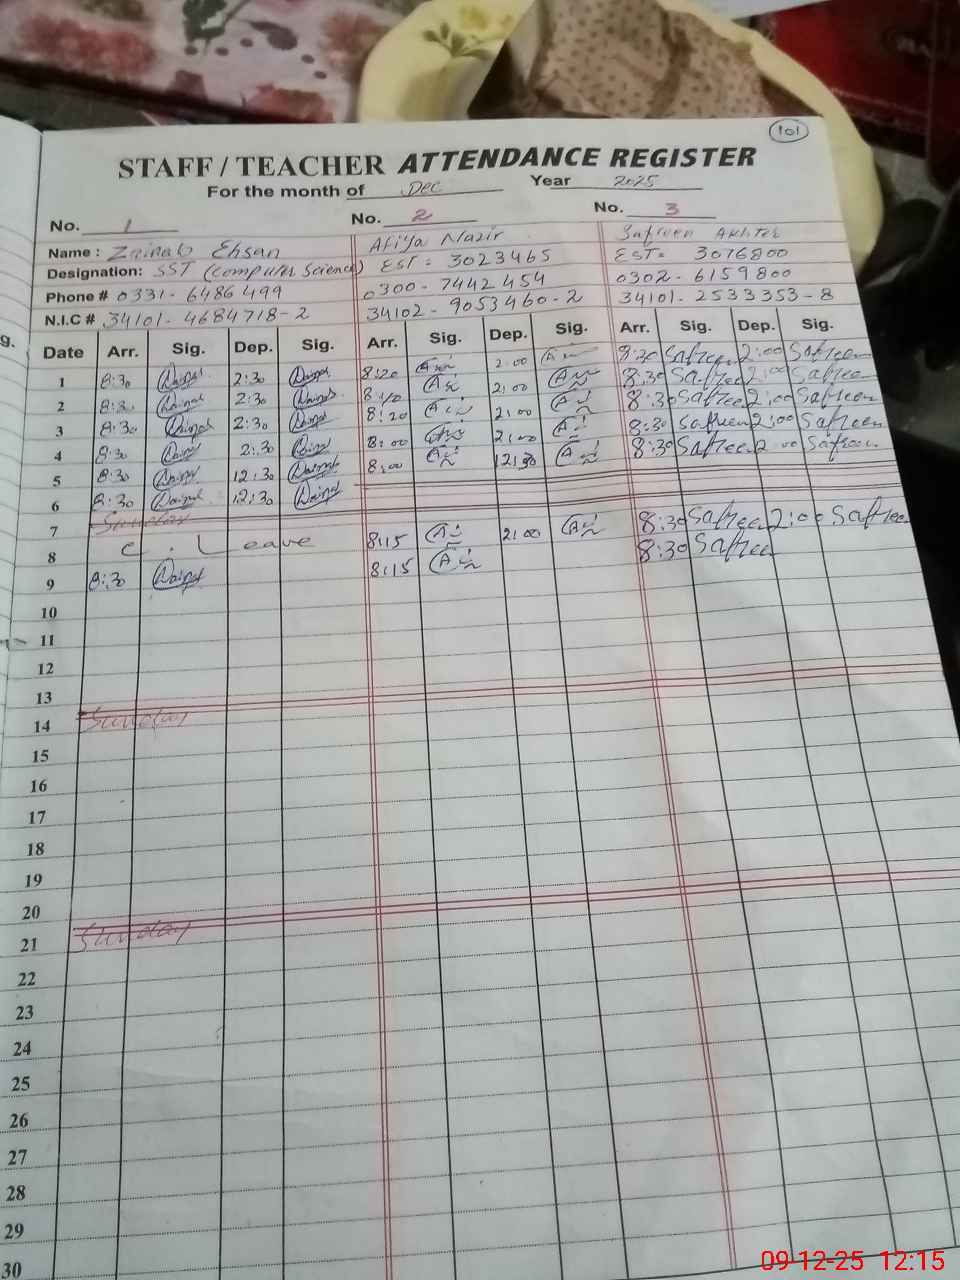 101
STAFF / TEACHER ATTENDANCE REGISTER
For the month of Dec Year 2025
No. 1 No. 2 No. 3
Name : Zainab Ehsan Afiya Nazir Safreen Akhter
Designation: SST (Computer Science) EST = 3023465 EST = 3076800
Phone # 0331-6486499 0300-7442454 0302-6159800
N.I.C # 34101-4684718-2 34102-9053460-2 34101-2533353-8
Date Arr. Sig. Dep. Sig. Arr. Sig. Dep. Sig. Arr. Sig. Dep. Sig.
1 8:30 Zainab 2:30 Zainab 8:20 2:00 8:30 Safreen 2:00 Safreen
2 8:30 Zainab 2:30 Zainab 8:10 2:00 8:30 Safreen 2:00 Safreen
3 8:30 Zainab 2:30 Zainab 8:20 2:00 8:30 Safreen 2:00 Safreen
4 8:30 Zainab 2:30 Zainab 8:00 2:00 8:30 Safreen 2:00 Safreen
5 8:30 Zainab 12:30 Zainab 8:00 12:30 8:30 Safreen 2:00 Safreen
6 8:30 Zainab 12:30 Zainab
7 Sunday
8 C. Leave 8:15 2:00 8:30 Safreen 2:00 Safreen
9 8:30 Zainab 8:15 8:30 Safreen
10
11
12
13
14 Sunday
15
16
17
18
19
20
21 Sunday
22
23
24
25
26
27
28
29
30
09-12-25 12:15